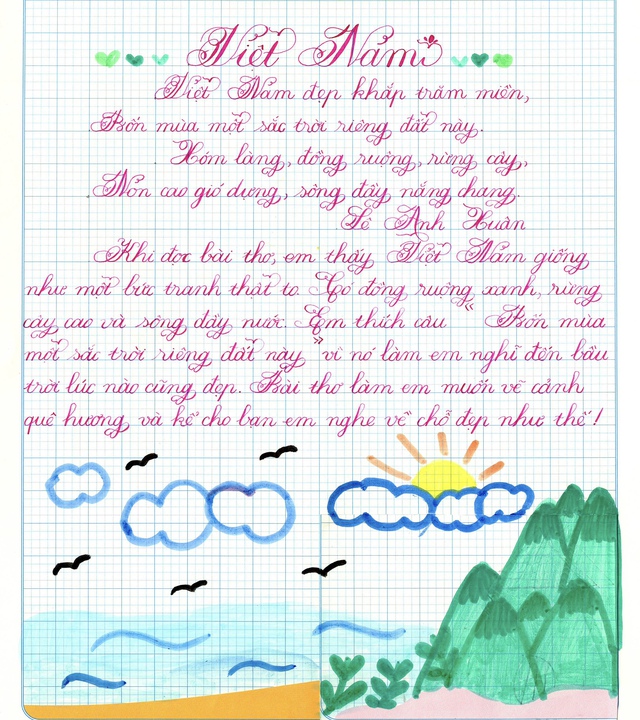 Việt Nam
Việt Nam đẹp khắp trăm miền,
Bốn mùa một sắc trời riêng đất này.
Xóm làng, đồng ruộng, rừng cây,
Non cao gió dựng, sông đầy nắng chang.
Lê Anh Xuân
Khi đọc bài thơ, em thấy Việt Nam giống
như một bức tranh thật to. Có đồng ruộng xanh, rừng
cây cao và sông đầy nước. Em thích câu " Bốn mùa
một sắc trời riêng đất này " vì nó làm em nghĩ đến bầu
trời lúc nào cũng đẹp. Bài thơ làm em muốn vẽ cảnh
quê hương và kể cho bạn em nghe về chỗ đẹp như thế !